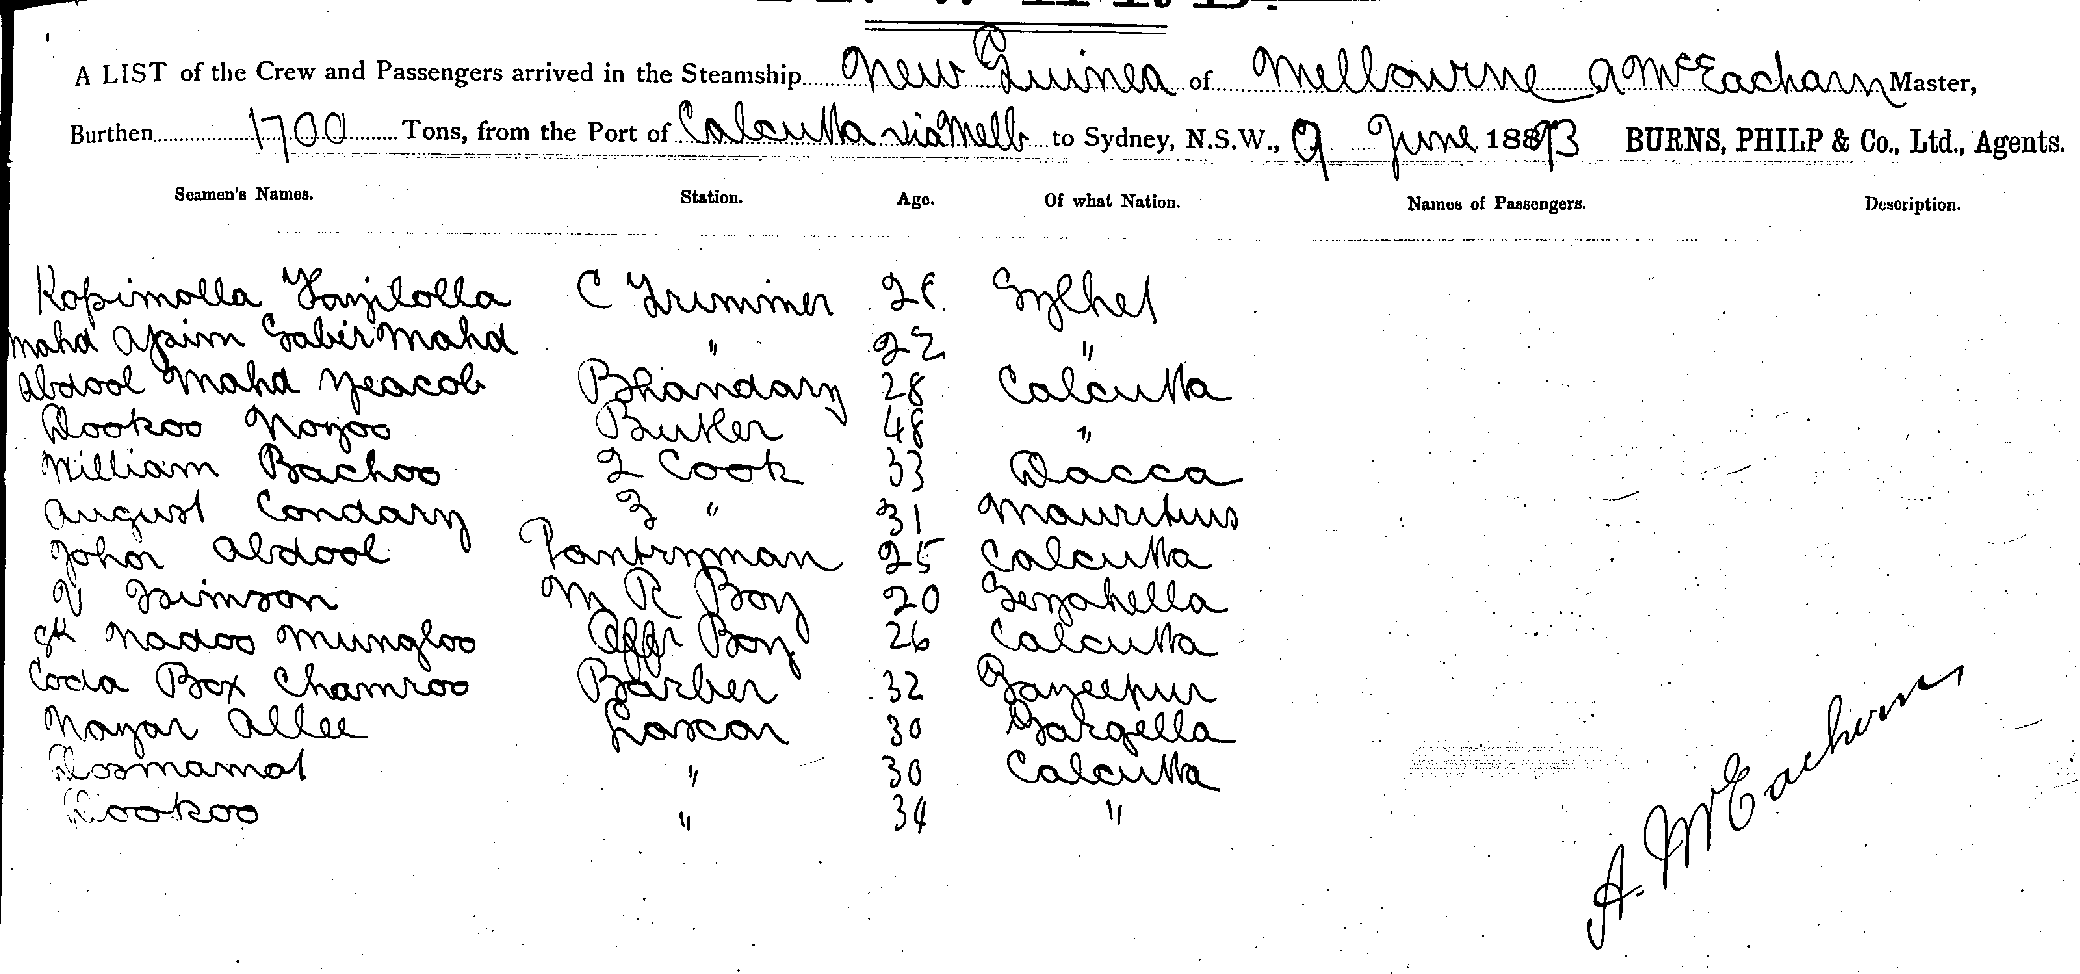 A LIST of the Crew and Passengers arrived in the Steamship New Guinea of Melbourne A McEacharn Master,
Burthen 1700 Tons, from the Port of Calcutta via Melb to Sydney, N.S.W., 9 June 1893 BURNS, PHILP & Co., Ltd., Agents.
Seamen's Names. Station. Age. Of what Nation. Names of Passengers. Description.
Kopimolla Fazilolla C Trimmer 26 Sylhet
Mahd Azim Sabir Mahd " 22 "
Abdool Mahd Yeacob Bhandary 28 Calcutta
Dookoo Noyoo Butler 48 "
William Bachoo 2 Cook 33 Dacca
August Condary 3 " 31 Mauritius
John Abdool Pantryman 25 Calcutta
V Simson M R Boy 20
Sk Nadoo Mungloo Offr Boy 26 Calcutta
Coda Box Chamroo Barber 32 Gazeepur
Nazar Allee Lascar 30
Dosmamat " 30 Calcutta
Dookoo " 34 "
A. McEacharn